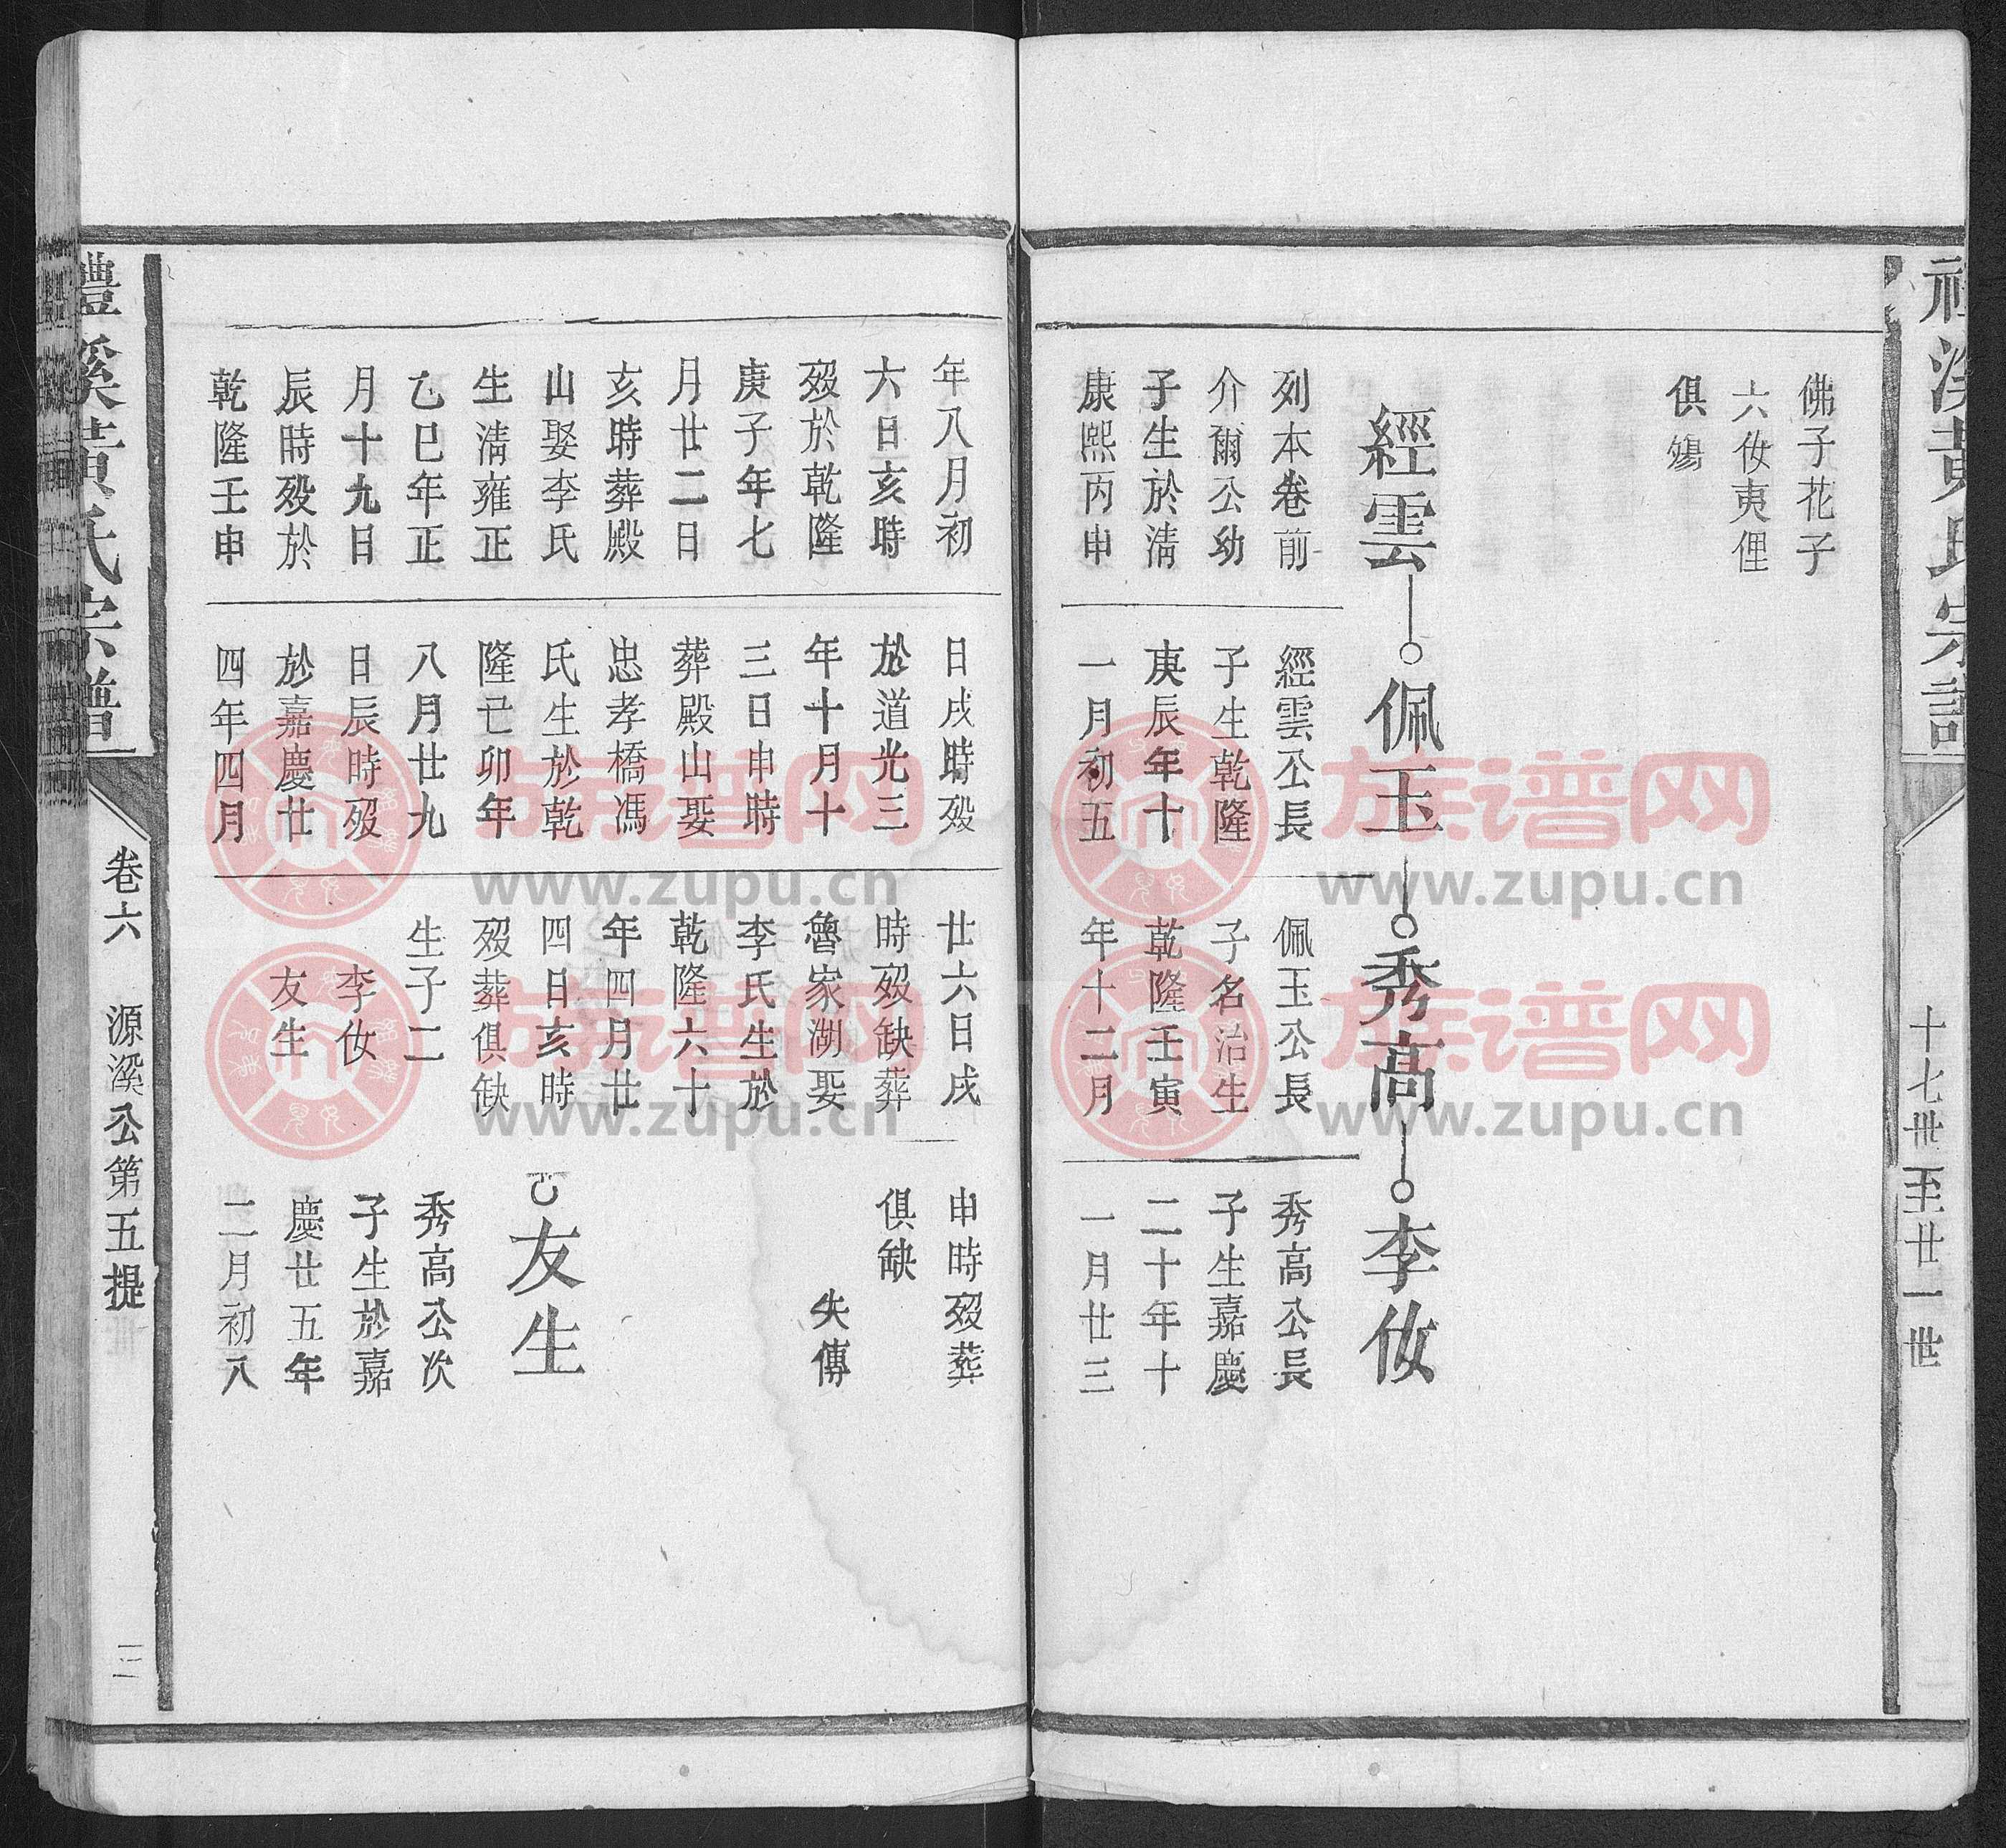 溪黃氏宗譜
十七卅至廿一世
佛子花子
六攸夷俚
俱殤
經雲
佩玉
秀高
李攸
列本卷前
介爾公幼
子生於清
康熙丙申
經雲公長
子生乾隆
庚辰年十
一月初五
佩玉公長
子名治生
乾隆壬寅
年十二月
秀高公長
子生嘉慶
二十年十
一月廿三
年八月初
六日亥時
歿於乾隆
庚子年七
月廿二日
亥時葬殿
山娶李氏
生淸雍正
乙巳年正
月十九日
辰時歿於
乾隆壬申
日戌時歿
於道光三
年十月十
三日申時
葬殿山娶
忠孝橋馮
氏生於乾
隆己卯年
八月廿九
日辰時歿
於嘉慶廿
四年四月
廿六日戌
時歿缺葬
魯家湖娶
李氏生於
乾隆六十
年四月廿
四日亥時
歿葬俱缺
生子二
李攸
友生
申時歿葬
俱缺
失傳
友生
秀高公次
子生於嘉
慶廿五年
二月初八
禮溪黃氏宗譜
卷六
源溪公第五提
三
族谱网
www.zupu.cn
族谱网
www.zupu.cn
族谱网
www.zupu.cn
族谱网
www.zupu.cn